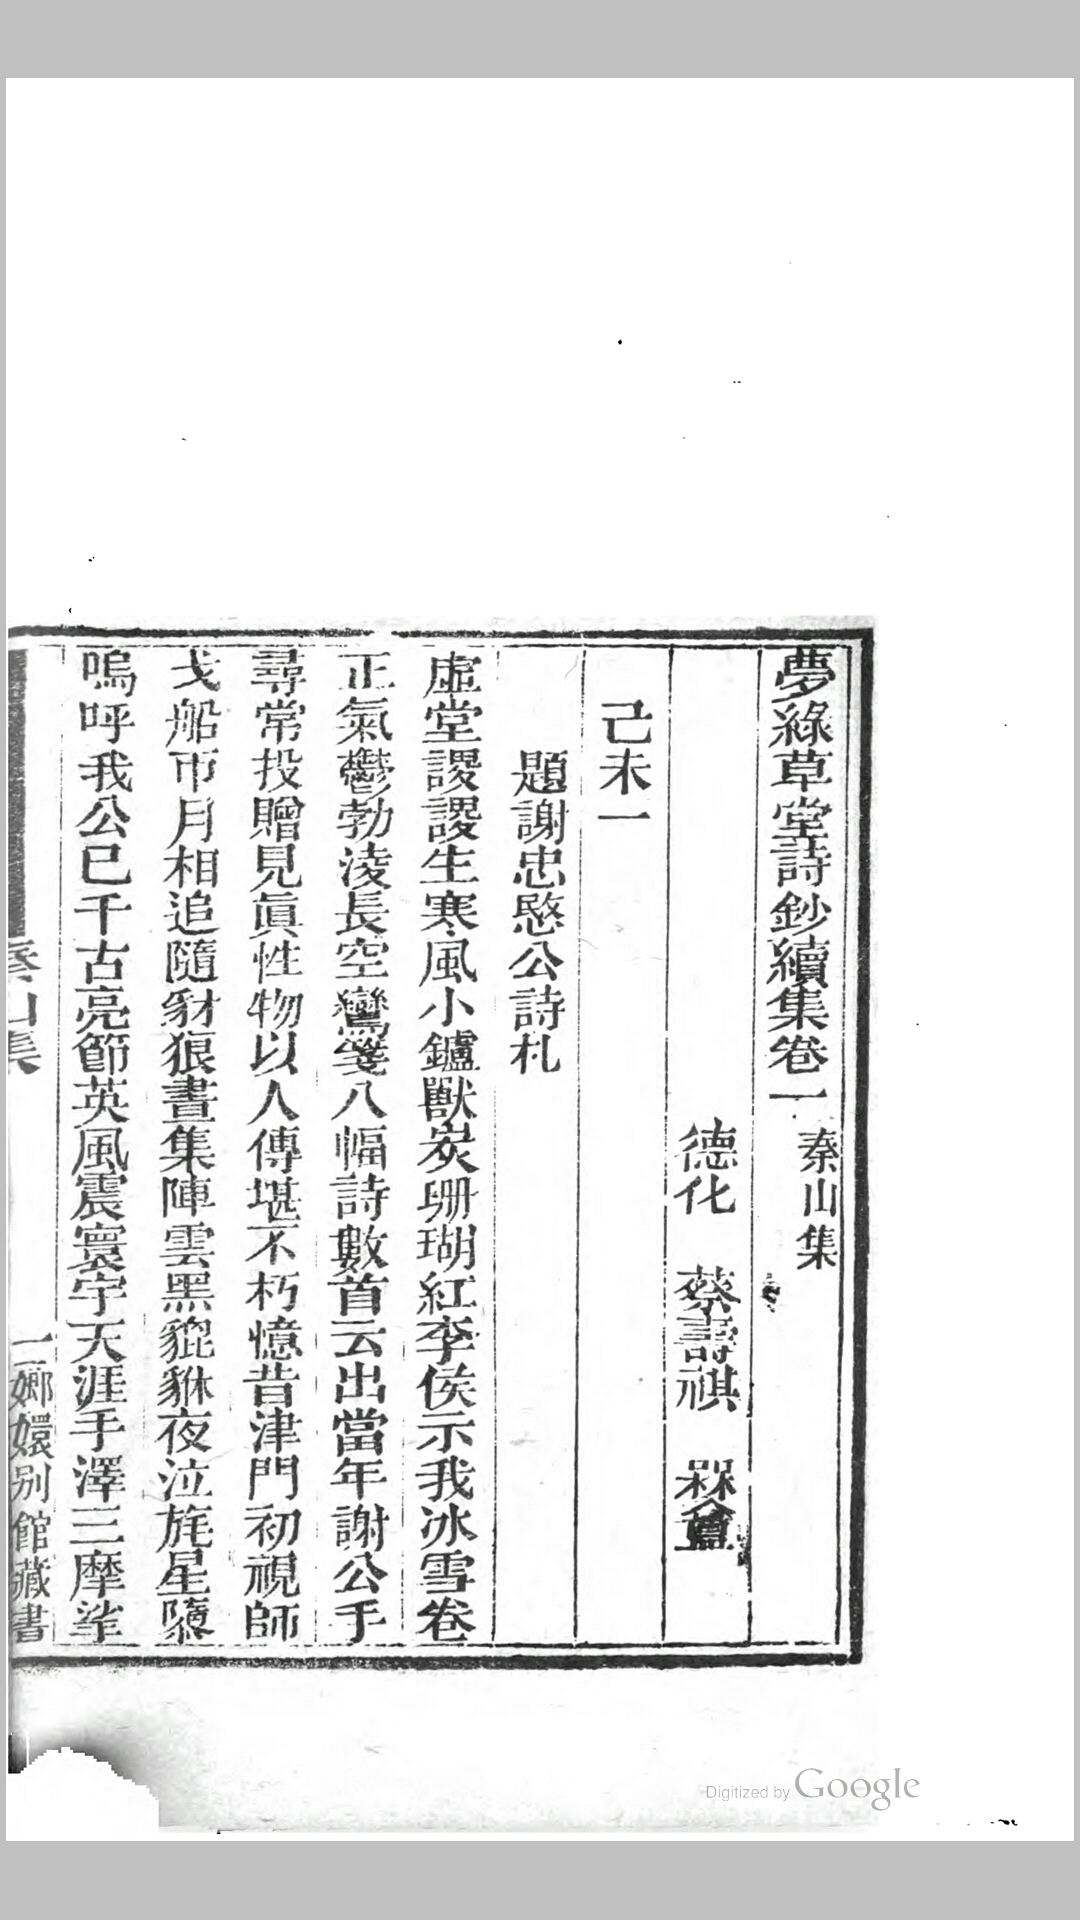 夢綠草堂詩鈔續集卷一　秦山集
德化　蔡壽祺　槑盦
己未一
題謝忠愍公詩札
虛堂謖謖生寒風小鑪獸炭珊瑚紅李侯示我冰雪卷
正氣鬱勃淩長空鸞箋八幅詩數首云出當年謝公手
尋常投贈見眞性物以人傳堪不朽憶昔津門初視師
戈船帀月相追隨豺狼晝集陣雲黑貔貅夜泣旄星隳
嗚呼我公已千古亮節英風震寰宇天涯手澤三摩挲
山集
一嫏嬛别館藏書
Digitized by Google